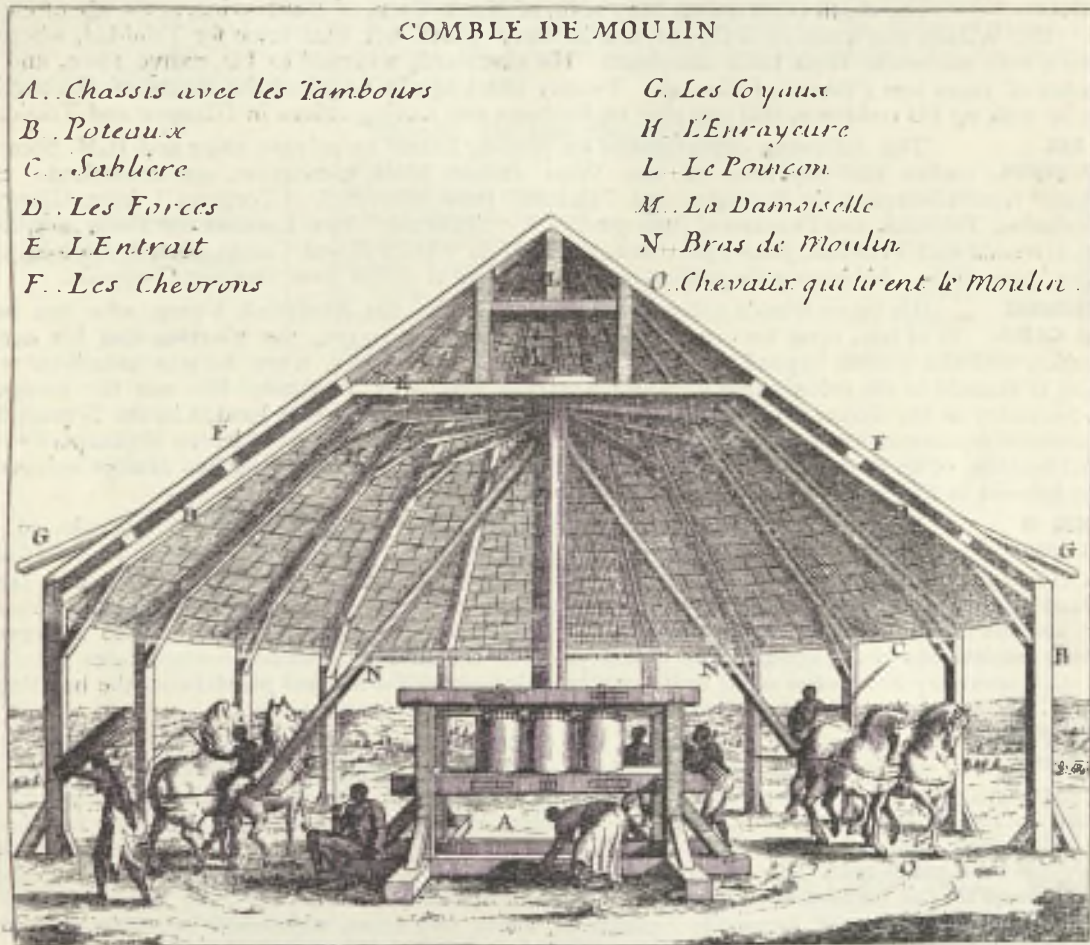 COMBLE DE MOULIN
A.. Chassis avec les Tambours
B.. Poteaux
C.. Sabliere
D.. Les Forces
E.. L'Entrait
F.. Les Chevrons
G. Les Coyaux
H. L'Enrayeure
L. Le Poinçon
M. La Damoiselle
N. Bras de Moulin
O. Chevaux qui tirent le Moulin.
L
E
F
F
H
G
G
N
N
C
B
A
O